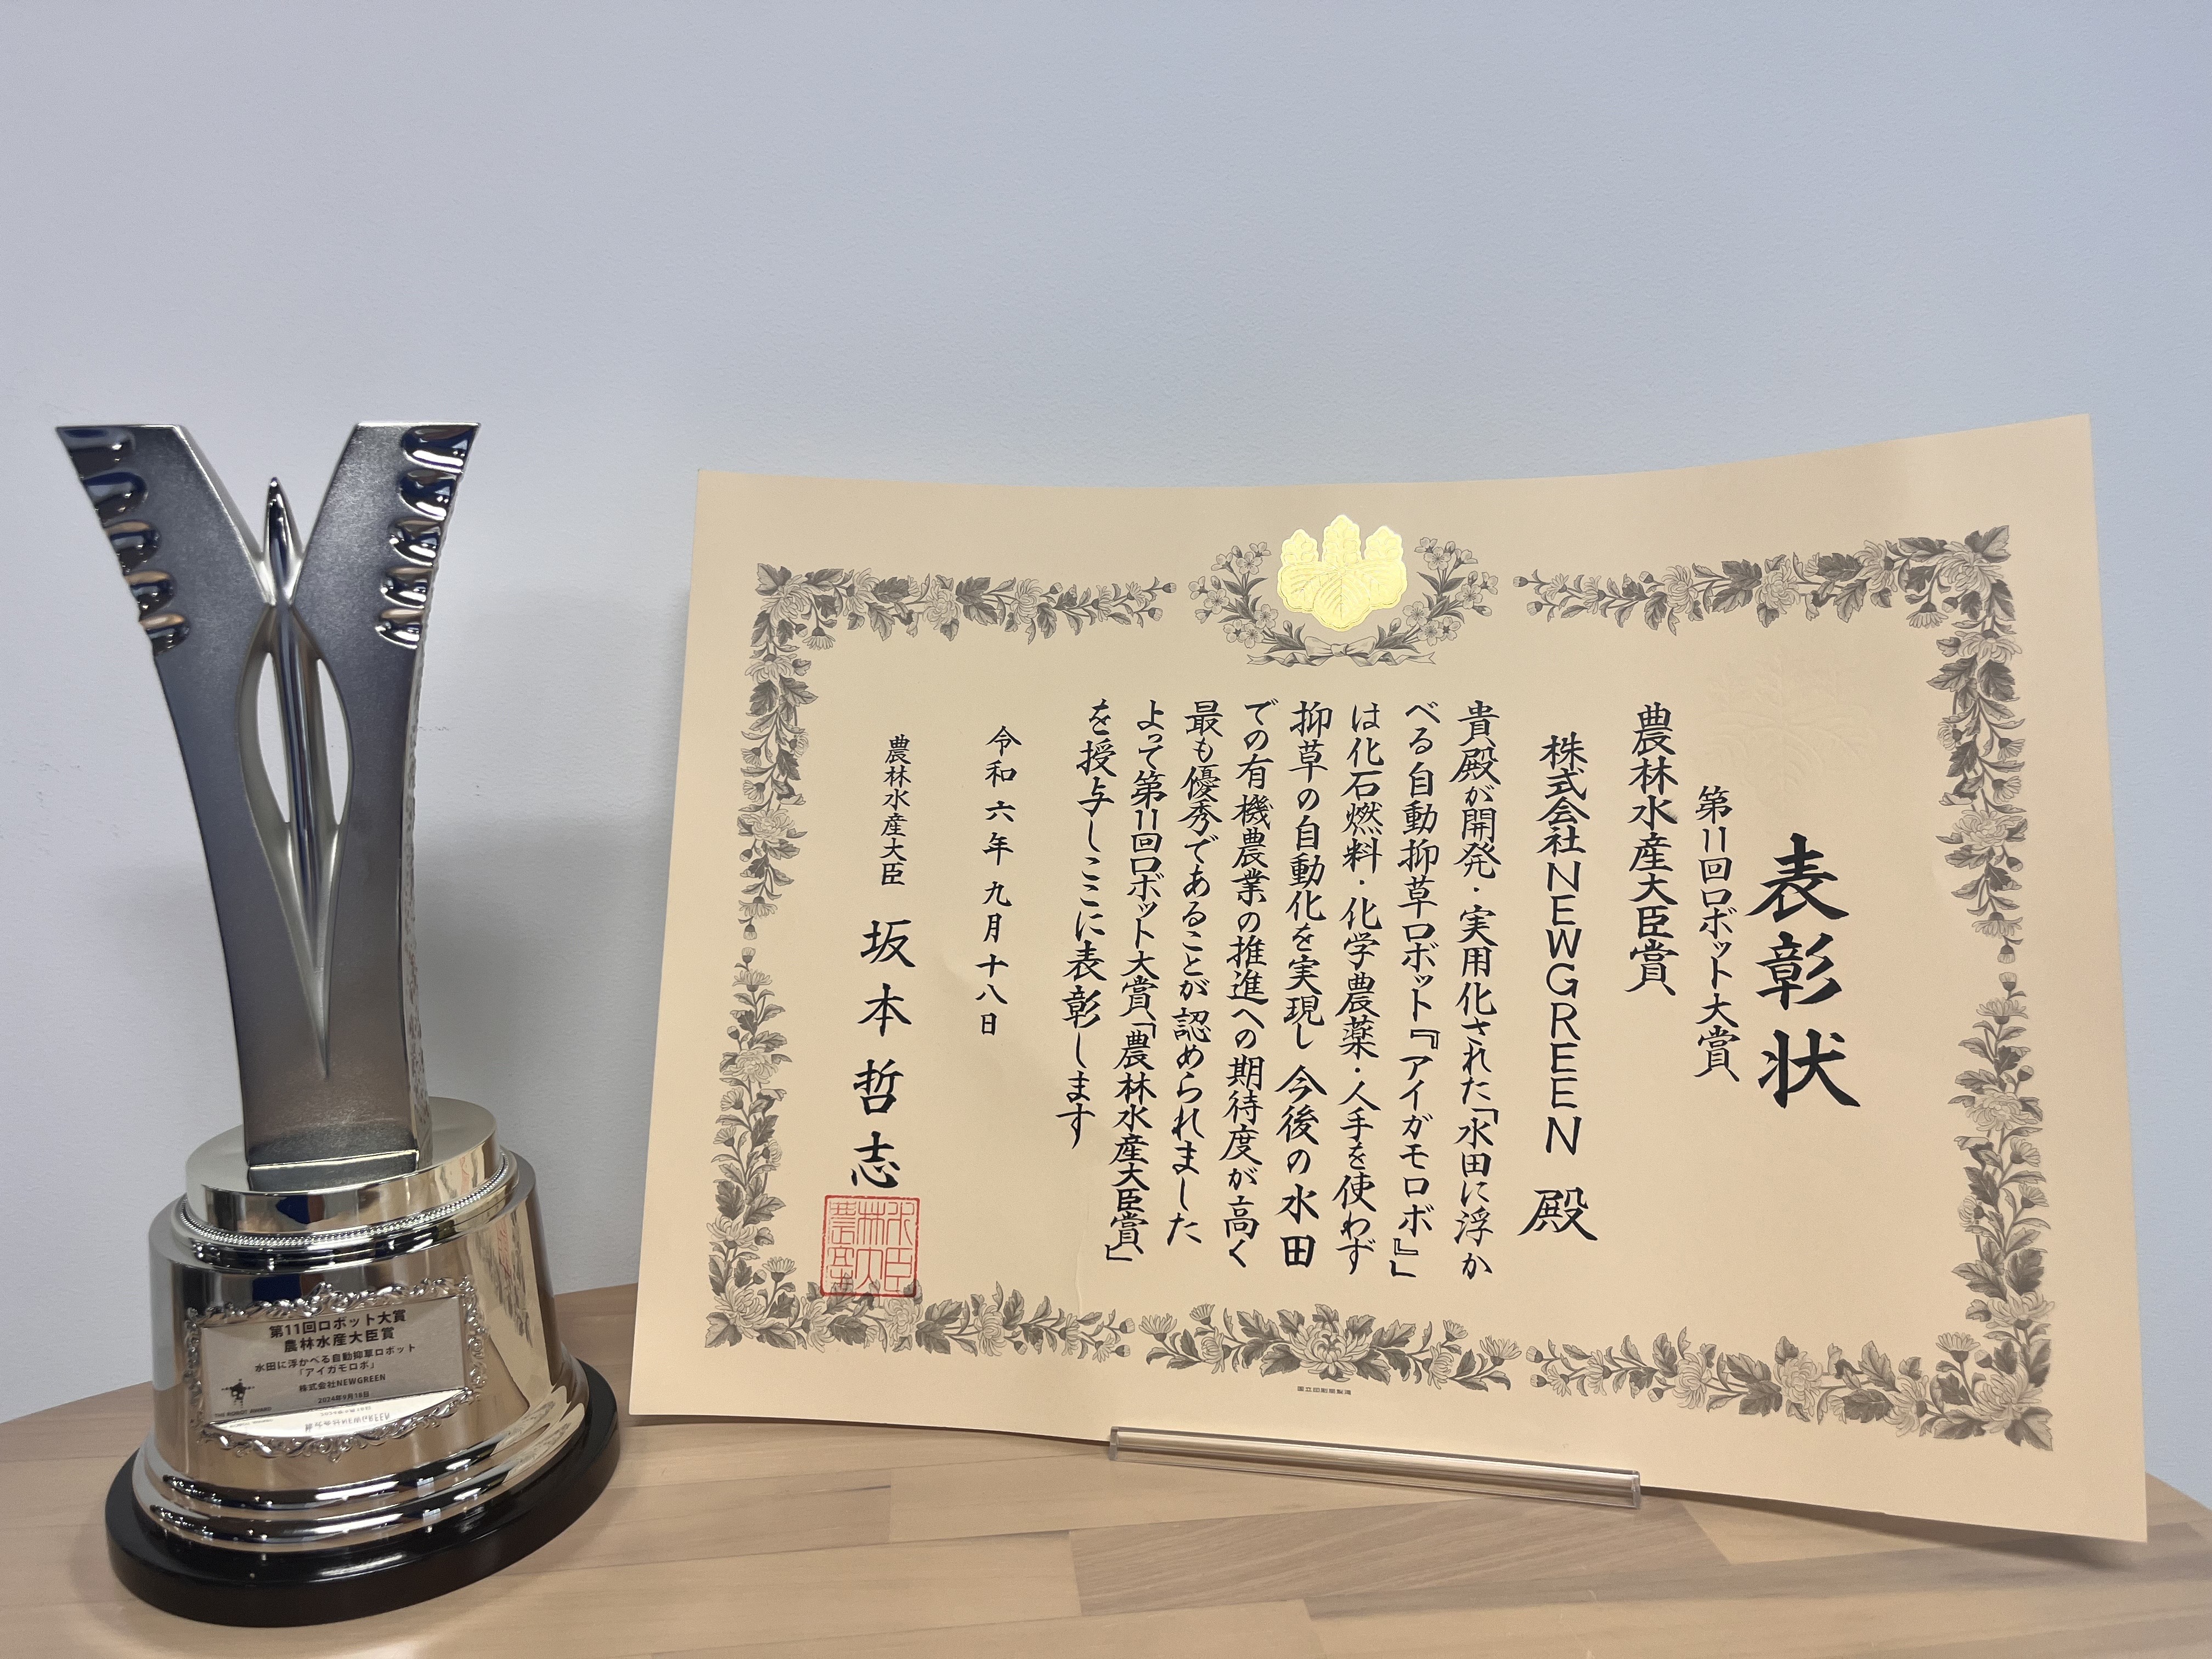 表彰状
第11回ロボット大賞
農林水産大臣賞
株式会社NEWGREEN 殿
貴殿が開発・実用化された「水田に浮か
べる自動抑草ロボット『アイガモロボ』」
は化石燃料・化学農薬・人手を使わず
抑草の自動化を実現し今後の水田
での有機農業の推進への期待度が高く
最も優秀であることが認められました
よって第11回ロボット大賞「農林水産大臣賞」
を授与しここに表彰します
令和六年九月十八日
農林水産大臣 坂本哲志
国立印刷局製造
第11回ロボット大賞
農林水産大臣賞
水田に浮かべる自動抑草ロボット
「アイガモロボ」
株式会社NEWGREEN
2024年9月18日
THE ROBOT AWARD